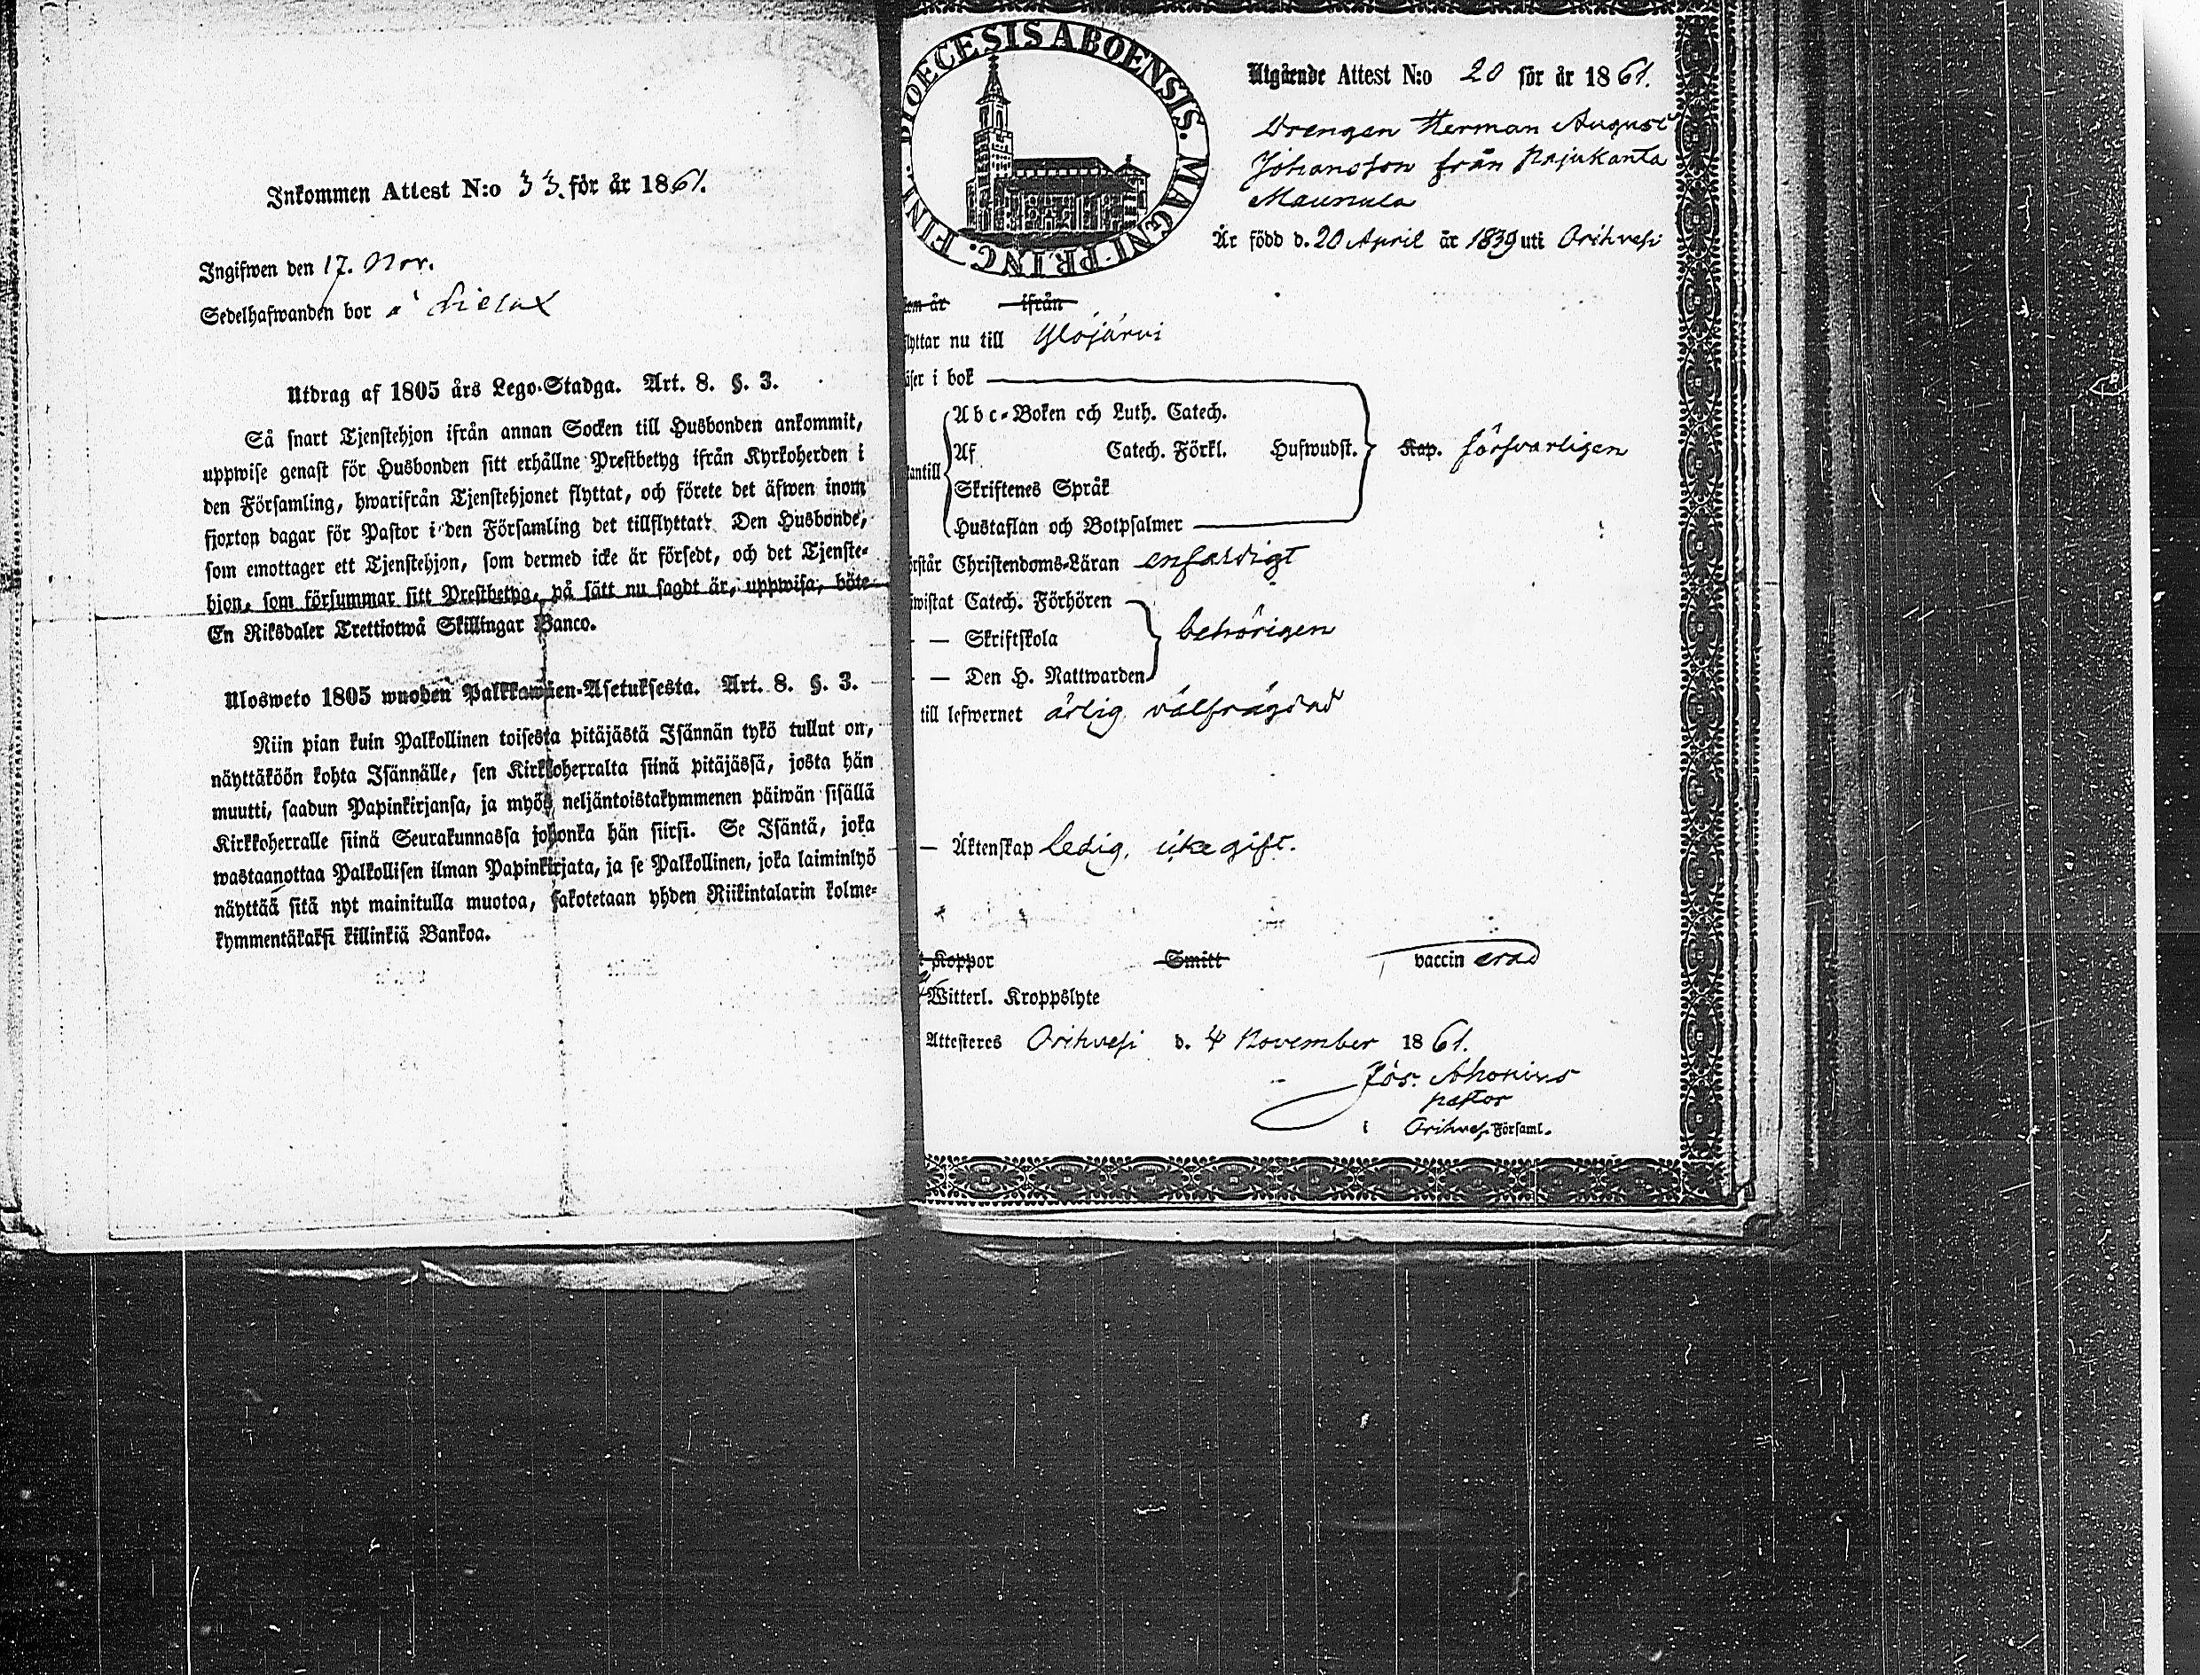 Inkommen Attest N:o 33. för år 1861.
Ingifwen den 17. Nov.
Sedelhafwanden bor å
Utdrag af 1805 års Lego-Stadga. Art. 8. §. 3.
Så snart Tjenstehjon ifrån annan Socken till Husbonden ankommit,
uppwise genast för Husbonden sitt erhållne Prestbetyg ifrån Kyrkoherden i
den Församling, hwarifrån Tjenstehjonet flyttat, och förete det äfwen inom
fjorton dagar för Pastor i den Församling det tillflyttat. Den Husbonde,
som emottager ett Tjenstehjon, som dermed icke är försedt, och det Tjenste-
hjon, som försummar sitt Prestbetyg, på sätt nu sagdt är, uppwisa, böte
En Riksdaler Trettiotwå Skillingar Banco.
Ulosweto 1805 wuoden Palkkawäen-Asetuksesta. Art. 8. §. 3.
Niin pian kuin Palkollinen toisesta pitäjästä Isännän tykö tullut on,
näyttäköön kohta Isännälle, sen Kirkkoherralta siinä pitäjässä, josta hän
muutti, saadun Papinkirjansa, ja myös neljäntoistakymmenen päiwän sisällä
Kirkkoherralle siinä Seurakunnassa johonka hän siirsi. Se Isäntä, joka
wastaanottaa Palkollisen ilman Papinkirjata, ja se Palkollinen, joka laiminlyö
näyttää sitä nyt mainitulla muotoa, sakotetaan yhden Riikintalarin kolme-
kymmentäkaksi killinkiä Bankoa.
DIOECESIS ABOENSIS. MAGNI PRINC. FINL.
Utgående Attest N:o 20 för år 1861.
Drengen Herman August
Johansson från Pajukanta
Maunula
Är född d. 20 April år 1839 uti Orihvesi
om år ifrån
flyttar nu till Ylöjärvi
äser i bok
Abc-Boken och Luth. Catech.
Af Catech. Förkl. Hufwudst. Kap. försvarligen
antill
Skriftenes Språk
Hustaflan och Botpsalmer
rstår Christendoms-Läran enfaldigt
wistat Catech. Förhören
— Skriftskola behörigen
— Den H. Nattwarden
till lefwernet ärlig välfrägdad
— Äktenskap ledig, icke gift.
Koppor Smitt vaccinerad
Witterl. Kroppslyte
Attesteres Orihvesi d. 4 November 1861.
Jos. Ahonius
pastor
i Orihvesi Församl.